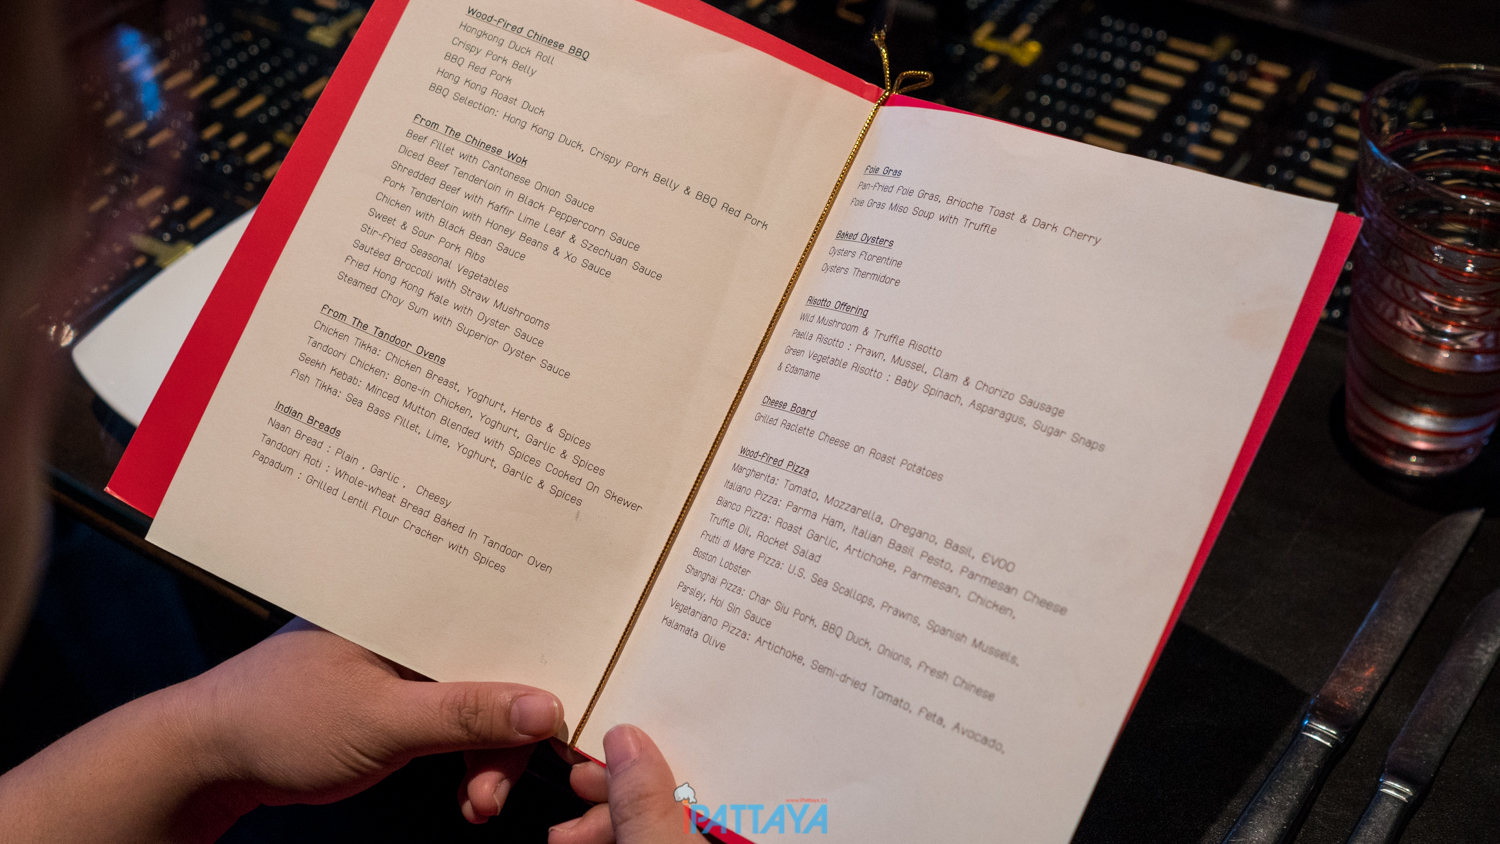 Wood-Fired Chinese BBQ
Hongkong Duck Roll
Crispy Pork Belly
BBQ Red Pork
Hong Kong Roast Duck
BBQ Selection: Hong Kong Duck, Crispy Pork Belly & BBQ Red Pork
From The Chinese Wok
Beef Fillet with Cantonese Onion Sauce
Diced Beef Tenderloin in Black Peppercorn Sauce
Shredded Beef with Kaffir Lime Leaf & Szechuan Sauce
Pork Tenderloin with Honey Beans & Xo Sauce
Chicken with Black Bean Sauce
Sweet & Sour Pork Ribs
Stir-Fried Seasonal Vegetables
Sautéed Broccoli with Straw Mushrooms
Fried Hong Kong Kale with Oyster Sauce
Steamed Choy Sum with Superior Oyster Sauce
From The Tandoor Ovens
Chicken Tikka: Chicken Breast, Yoghurt, Herbs & Spices
Tandoori Chicken: Bone-in Chicken, Yoghurt, Garlic & Spices
Seekh Kebab: Minced Mutton Blended with Spices Cooked On Skewer
Fish Tikka: Sea Bass Fillet, Lime, Yoghurt, Garlic & Spices
Indian Breads
Naan Bread : Plain , Garlic , Cheesy
Tandoori Roti : Whole-wheat Bread Baked In Tandoor Oven
Papadum : Grilled Lentil Flour Cracker with Spices
Foie Gras
Pan-Fried Foie Gras, Brioche Toast & Dark Cherry
Foie Gras Miso Soup with Truffle
Baked Oysters
Oysters Florentine
Oysters Thermidore
Risotto Offering
Wild Mushroom & Truffle Risotto
Paella Risotto : Prawn, Mussel, Clam & Chorizo Sausage
Green Vegetable Risotto : Baby Spinach, Asparagus, Sugar Snaps
& Edamame
Cheese Board
Grilled Raclette Cheese on Roast Potatoes
Wood-Fired Pizza
Margherita: Tomato, Mozzarella, Oregano, Basil, EVOO
Italiano Pizza: Parma Ham, Italian Basil Pesto, Parmesan Cheese
Bianco Pizza: Roast Garlic, Artichoke, Parmesan, Chicken,
Truffle Oil, Rocket Salad
Frutti di Mare Pizza: U.S. Sea Scallops, Prawns, Spanish Mussels,
Boston Lobster
Shanghai Pizza: Char Siu Pork, BBQ Duck, Onions, Fresh Chinese
Parsley, Hoi Sin Sauce
Vegetariano Pizza: Artichoke, Semi-dried Tomato, Feta, Avocado,
Kalamata Olive
PATTAYA